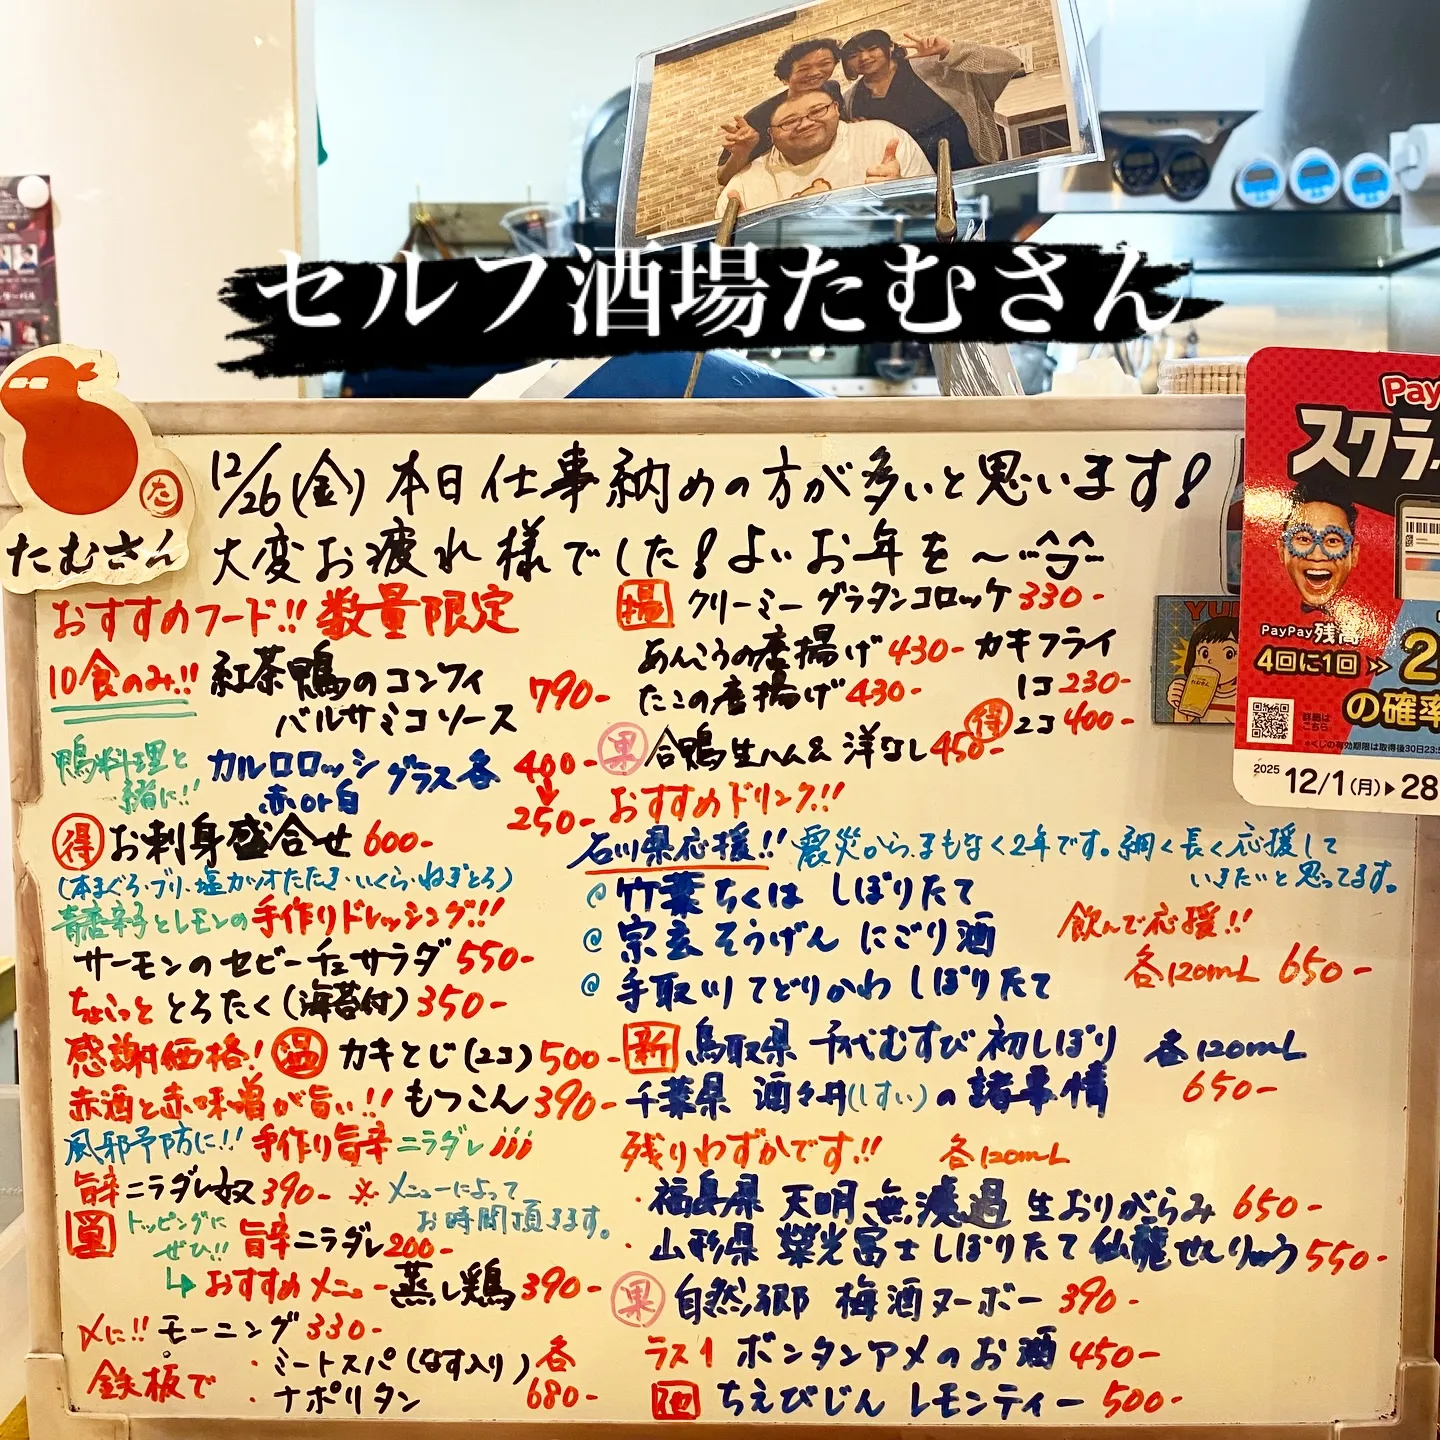 セルフ酒場たむさん
た
たむさん
12/26(金)本日仕事納めの方が多いと思います!
大変お疲れ様でした!よいお年を～
おすすめフード!!数量限定
10食のみ!! 紅茶鴨のコンフィ
バルサミコソース 790-
鴨料理と
一緒に!!
カルロロッシ
赤or白
グラス各 400-
250-
得 お刺身盛合せ 600-
(本まぐろ・ブリ・塩カツオたたき・いくら・ねぎとろ)
青唐辛子とレモンの手作りドレッシング!!
サーモンのセビーチェサラダ 550-
ちょこっと とろたく(海苔付) 350-
感謝価格! 温 カキとじ(2コ) 500-
赤酒と赤味噌が旨い!! もつこん 390-
風邪予防に!! 手作り旨辛ニラダレ
旨辛ニラダレ奴 390- ※メニューによって
お時間頂きます。
単 トッピングに
ぜひ!! 旨辛ニラダレ 200-
おすすめメニュー 蒸し鶏 390-
〆に!! モーニング 330-
鉄板で
・ミートスパ(なす入り)
・ナポリタン
各
680-
揚 クリーミーグラタンコロッケ 330-
あんこうの唐揚げ 430- カキフライ
たこの唐揚げ 430- 1コ 230-
得 2コ 400-
果 合鴨生ハム& 洋なし 450-
おすすめドリンク!!
石川県応援!! 震災から、まもなく2年です。細く長く応援して
いきたいと思ってます。
@ 竹葉 ちくは しぼりたて
@ 宗玄 そうげん にごり酒
@ 手取川 てどりがわ しぼりたて
飲んで応援!!
各120mL 650-
新 鳥取県 千代むすび 初しぼり 各120mL
千葉県 酒々井(しすい)の諸事情 650-
残りわずかです!! 各120mL
・福島県 天明 無濾過 生おりがらみ 650-
・山形県 榮光冨士 しぼりたて 仙龍 せんりゅう 550-
果 自然郷 梅酒ヌーボー 390-
ラス1 ボンタンアメのお酒 450-
ちえびじん レモンティー 500-
Pay
スクラ
PayPay残高
4回に1回
2
の確率
詳細は
こちら
2025 12/1(月)▶28